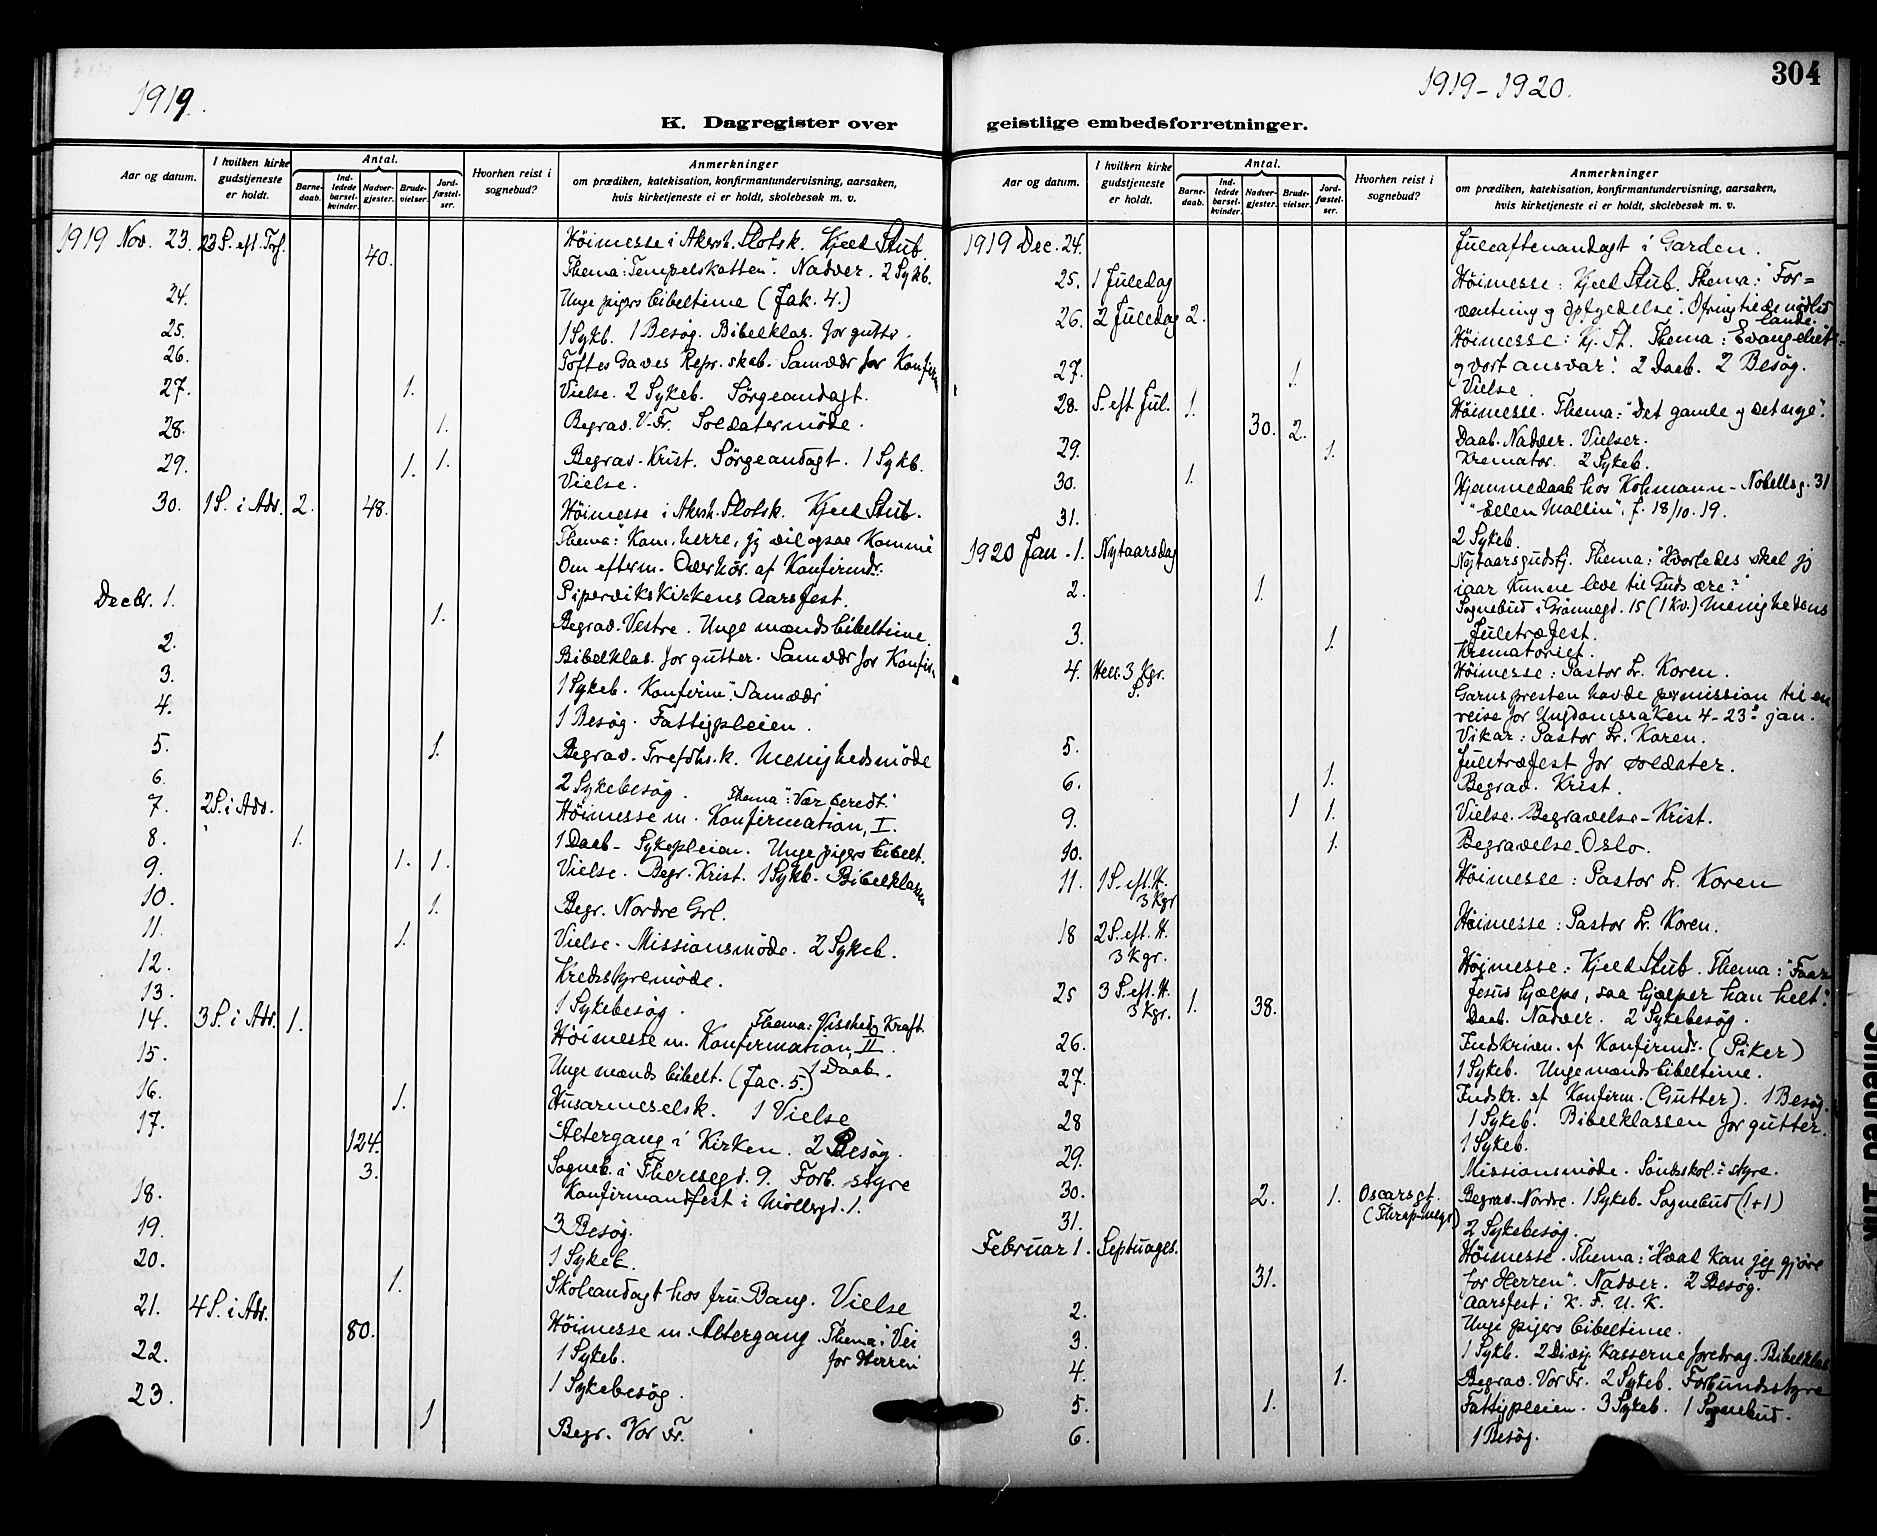 1919.
K. Dagregister over
Aar og datum.
I hvilken kirke gudstjeneste er holdt.
Antal.
Barne-daab.
Ind-ledede barsel-kvinder.
Nadver-gjester.
Brude-vielser.
Jord-fæstel-ser.
Hvorhen reist i sognebud?
Anmerkninger
om prædiken, katekisation, konfirmantundervisning, aarsaken,
hvis kirketjeneste ei er holdt, skolebesøk m. v.
1919 Nov. 23. 23 S. eft. Tref. 40. Høimesse i Akersh. Slotsk. Kjeld Stub.
Thema: "Tempelskatten". Nadver. 2 Sykb.
24. Unge pigers bibeltime (Jak. 4.)
25. 1 Sykb. 1 Besøg. Bibelklas. for gutter.
26. Toftes Gaves Repr. skab. Samvær for Konfirm
27. 1. Vielse. 2 Sykeb. Sørgeandagt.
28. 1. Begrav. V. Fr. Soldatermøde.
29. 1. 1. Begrav. Krist. Sørgeandagt. 1 Sykb.
Vielse.
30. 1 S. i Adv. 2. 48. Høimesse i Akersh. Slotsk. Kjeld Stub.
Thema: "Kom, herre, jeg vil ogsaa komme
Om efterm. Overhør. af Konfirmdr.
Decbr. 1. Pipervikskirkens Aarsfest.
1. Begrav. Vestre. Unge mænds bibeltime.
2. Bibelklas. for gutter. Samvær for Konfir.
3. 1 Sykeb. Konfirm. Samvær
4. 1 Besøg. Fattigpleien.
5. 1. Begrav. Trefdhs.k. Menighedsmøde
6. 2 Sykebesøg. Thema: "Vær beredt."
7. 2 S. i Adv. Høimesse m. Konfirmation, I.
8. " 1. 1 Daab. Sykepleien. Unge pigers bibelt.
9. 1. 1. Vielse. Begr. Krist. 1 Sykb. Bibelklassen
10. 1. Begr. Nordre Grl.
11. 1. Vielse. Missionsmøde. 2 Sykeb.
12. Kredsstyremøde.
13. 1 Sykebesøg. Thema: Visshed og Kraft
14. 3 S. i Adv. 1. Høimesse m. Konfirmation, II.
15. Unge mænds bibelt. (Jac. 5.) 1 Daab.
16. 1. Husarmeselsk. 1 Vielse
17. 124. Altergang i Kirken. 2 Besøg.
3. Sogneb. i Theresegd. 9. Forb. styre
18. Konfirmandfest i Møllergd. 1.
19. 3 Besøg.
20. 1 Sykeb.
1. Skoleandagt hos fru Bang. Vielse
21. 4 S. i Adv. 80. Høimesse m. Altergang. Thema: Vei
for Herren
22. 1 Sykeb.
23. 1 Sykebesøg.
1 Begr. Vor Fr.
1919-1920.
304
geistlige embedsforretninger.
Aar og datum.
I hvilken kirke gudstjeneste er holdt.
Antal.
Barne-daab.
Ind-ledede barsel-kvinder.
Nadver-gjester.
Brude-vielser.
Jord-fæstel-ser.
Hvorhen reist i sognebud?
Anmerkninger
om prædiken, katekisation, konfirmantundervisning, aarsaken,
hvis kirketjeneste ei er holdt, skolebesøk m. v.
1919 Dec. 24. Juleaftenandagt i Garden.
25. 1 Juledag Høimesse: Kjeld Stub. Thema: "For=
26. 2 Juledag 2. ventning og opfyldelse. Ofring til de nødlid
ende.
Høimesse: Kj. St. Thema: Evangeliet
27. 1. og vort ansvar. 2 Daab. 2 Besøg.
Vielse.
28. S. eft. Jul. 1. 30. 2. Høimesse. Thema: "Det gamle og det nye".
Daab. Nadver. Vielser.
29. 1. Kremator. 2 Sykeb.
30. 1. Hjemmedaab hos Kohmann - Nobelsg. 31
"Ellen Mallin", f. 18/10. 19.
31. 2 Sykeb.
1920 Jan. 1. Nytaarsdag Nytaarsgudstj. Thema: "Hvorledes skal jeg
iaar kunne leve til Guds ære?"
2. 1. Sognebud i Grønnegd. 15 (1 kv.) Menighedens
Juletræfest.
3. 1. Krematoriet.
4. Hell. 3 Kgr. S. Høimesse: Pastor Dr. Koren.
Garnis.presten havde permission til en
reise for Ungdomssaken 4-23. jan.
Vikar: Pastor Dr. Koren.
5. Juletræfest for soldater.
6. 1. Begrav. Krist.
9. 1 1. Vielse. Begravelse - Krist.
10. 1. Begravelse. Oslo.
11. 1 S. eft. H. 3 Kgr Høimesse: Pastor Dr. Koren
18 2 S. eft. H. 3 Kgr. Høimesse: Pastor Dr. Koren.
25 3 S. eft. H. 3 Kgr. 1. 38. Høimesse: Kjeld Stub. Thema: "Faar
Jesus hjælpe, saa hjælper han helt".
Daab. Nadver. 2 Sykebesøg.
26. Indskrivn. af Konfirmdr. (Piker)
1 Sykeb. Unge mænds bibeltime.
27. Indskr. af Konfirm. (Gutter). 1 Besøg.
1 Sykeb. Bibelklassen for gutter.
28 1 Sykeb.
29. Missionsmøde. Søndsskol. styre.
30. 2. 1. Oscarsgt. Begrav. Nordre. 1 Sykeb. Sognebud (1+1)
31. 2 Sykebesøg.
Februar 1. Septuages. 31. Høimesse. Thema: "Hvad kan jeg gjøre
for Herren". Nadver. 2 Besøg.
Aarsfest i K. F. U. K.
2. Unge pigers bibeltime.
3. 1 Sykb. 2 Divisj. Kasserne foredrag. Bibelklas
4. 1. Begrav. Vor Fr. 2 Sykeb. Forbundsstyre
5. 1. Fattigpleien. 3 Sykeb. 1 Sognebud.
6. 1 Besøg.